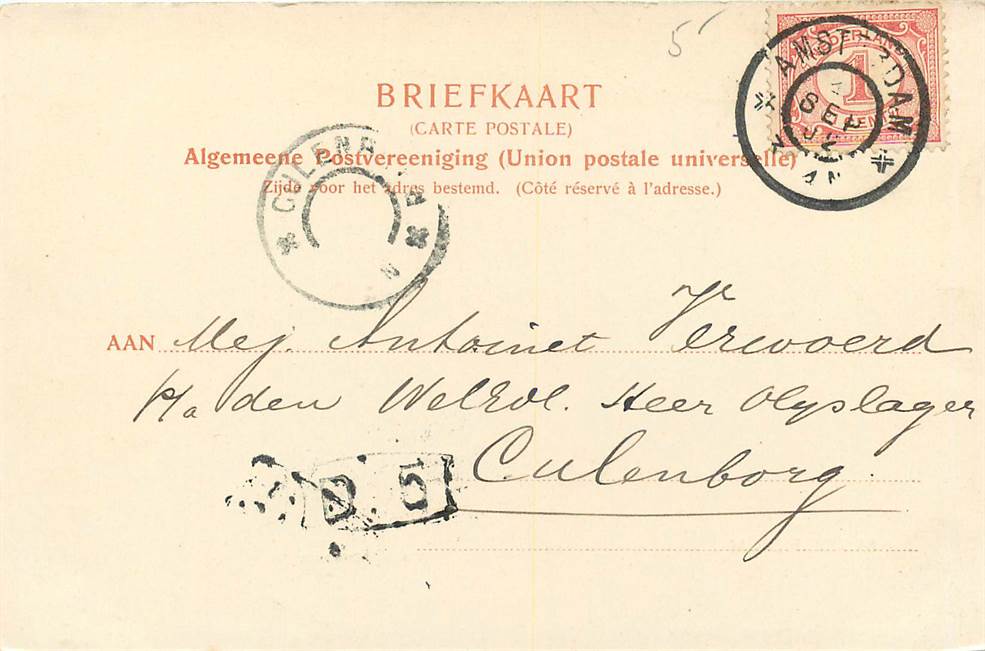 5
NEDERLAND
1
CENT
AMSTERDAM
SEP
BRIEFKAART
(CARTE POSTALE)
Algemeene Postvereeniging (Union postale universelle)
Zijde voor het adres bestemd. (Côté réservé à l'adresse.)
CULENB
N
AAN Mej. Antoinet Verwoerd
p/a den WelEd. Heer Olyslager
Culenborg.